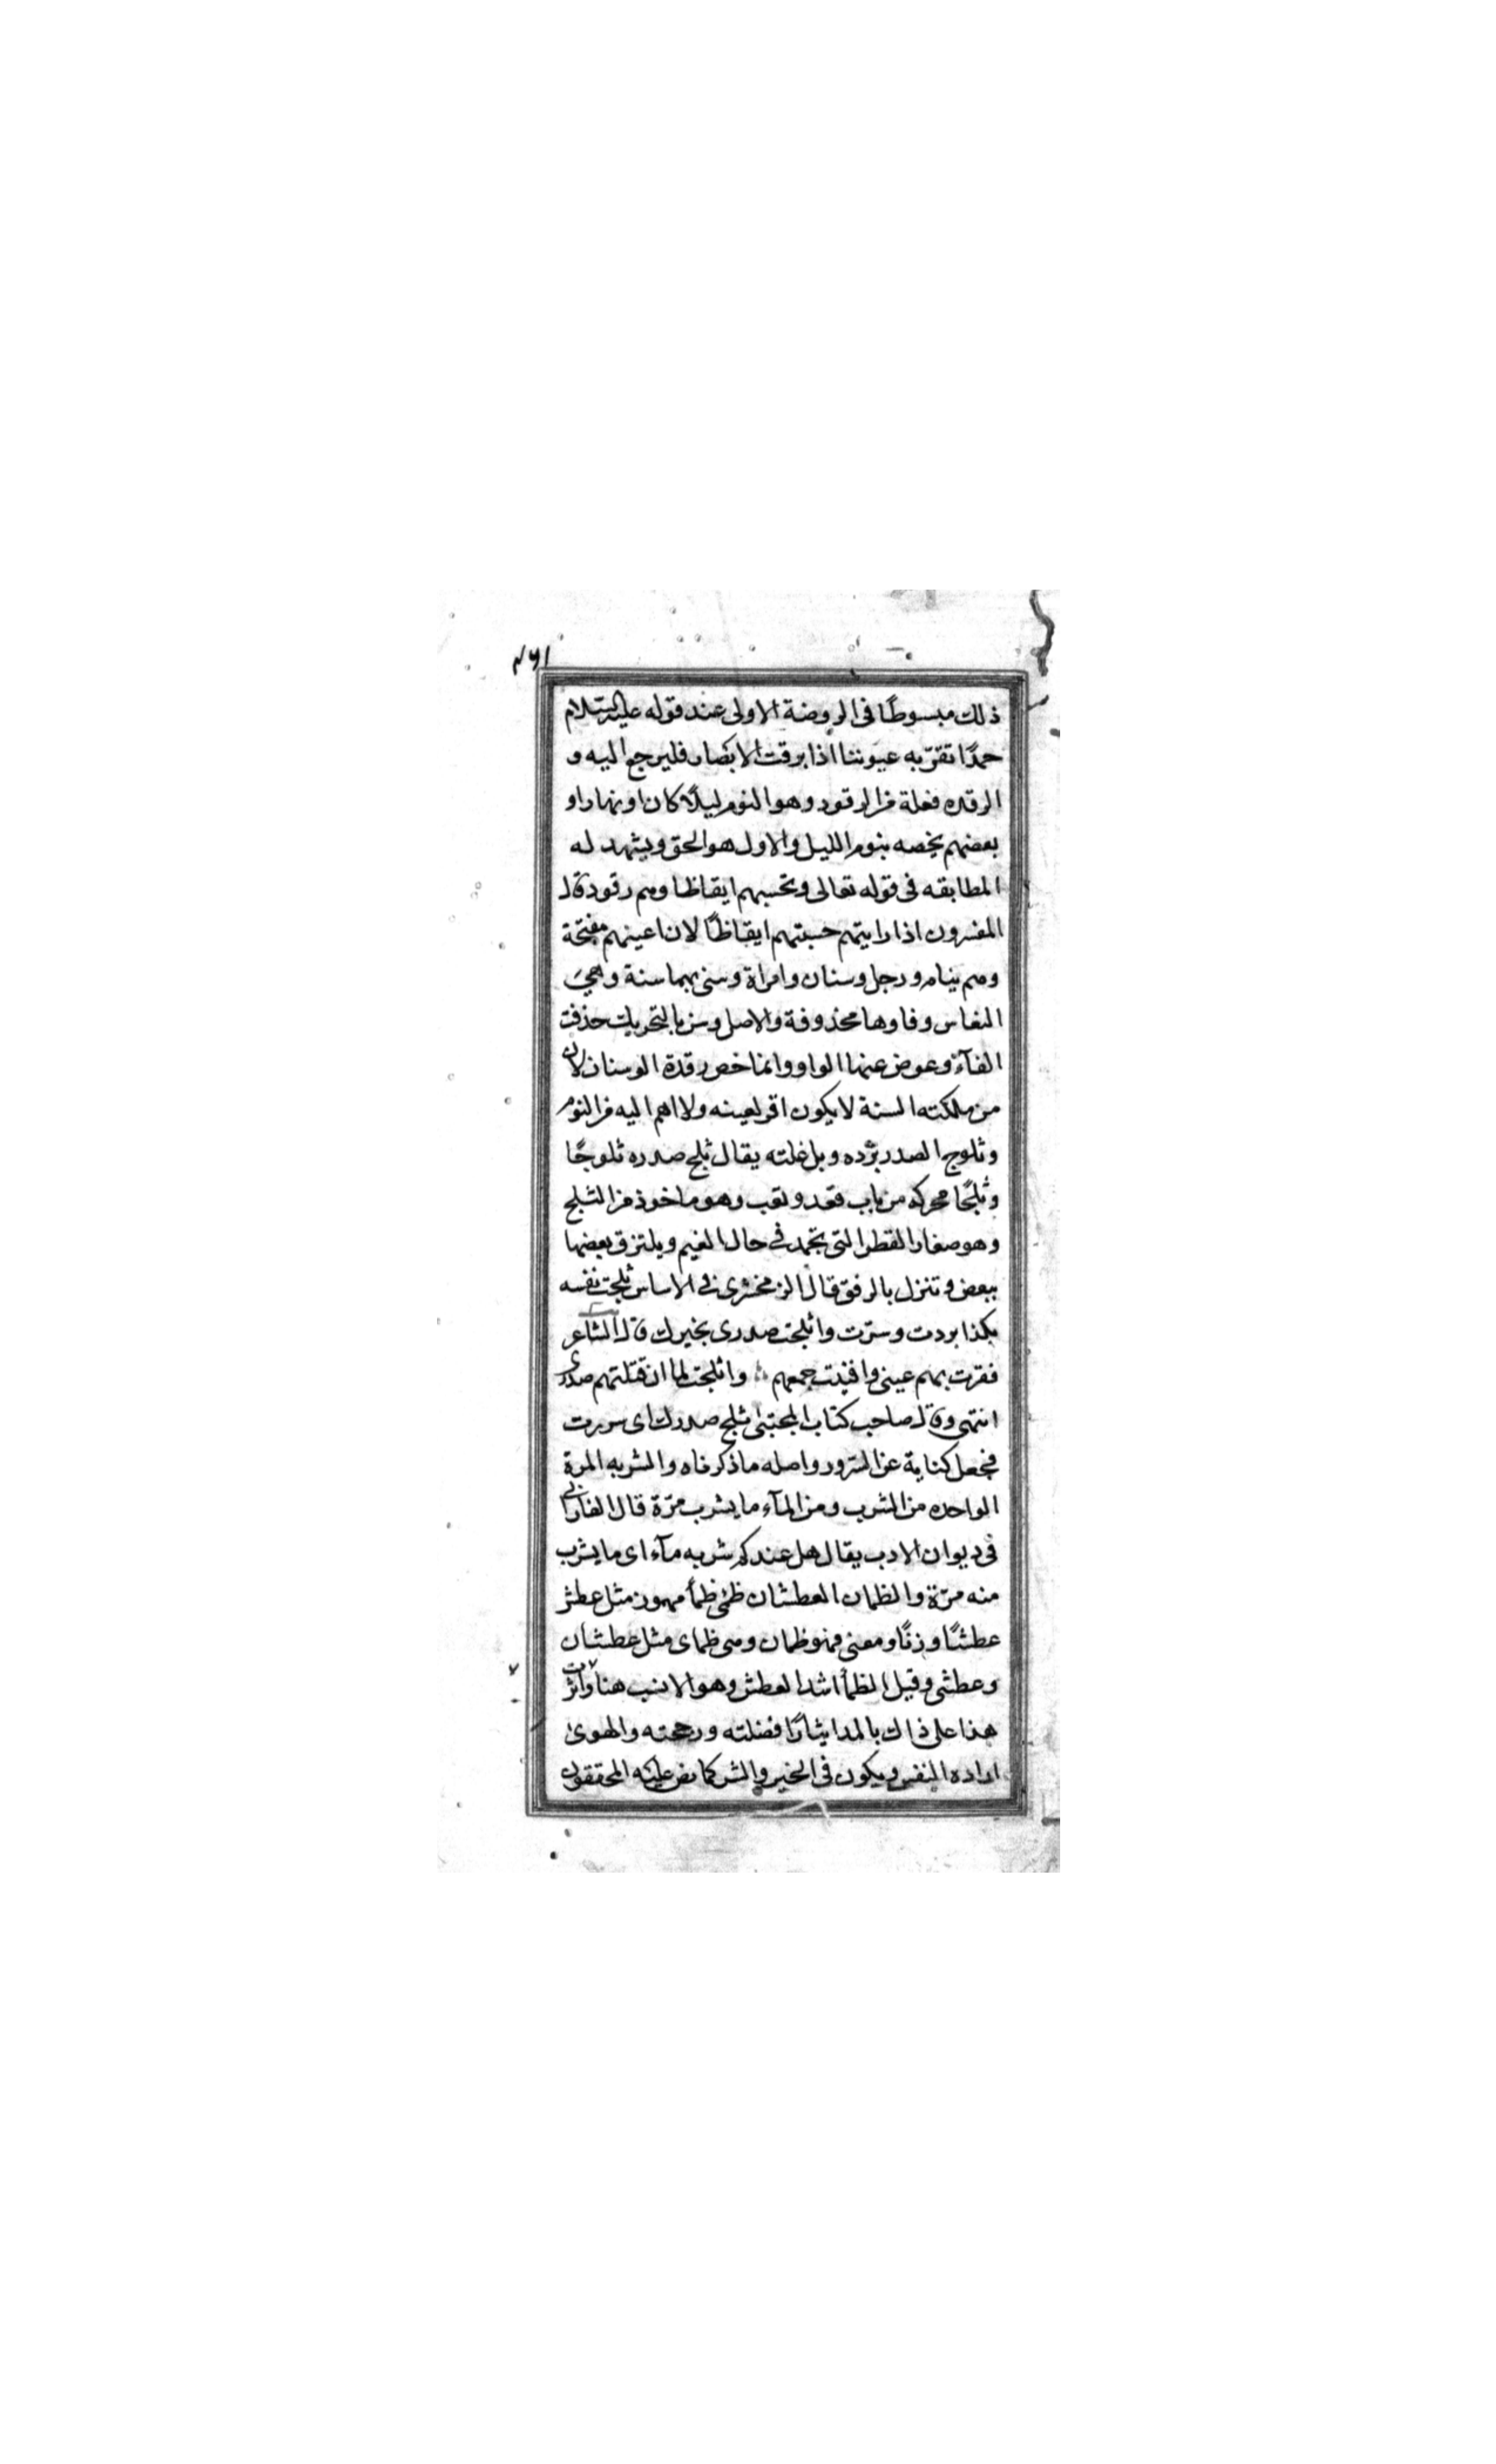 ٧٦١
ذلك مبسوطًا فى الروضة الاولى عند قوله عليه السّلام
حمدًا تقرّ به عيوننا اذا برقت الابصار فليرجع اليه و
الرقده فعلة من الرقود وهو النوم ليلًا كان او نهارا و
بعضهم يخصه بنوم الليل والاول هو الحق ويشهد له
المطابقه فى قوله تعالى وتحسبهم ايقاظا وهم رقود قال
المفسرون اذا رايتهم حسبتهم ايقاظًا لان اعينهم مفتحة
وهم ينام ورجل وسنان وامراة وسنى بهما سنة وهى
النعاس وفاوها محذوفة والاصل وسن بالتحريك حذفت
الفآء وعوض عنها الواو وانما خص رقدة الوسنان لان
من ملكته السنة لا يكون اقر لعينه ولا اهم اليه من النوم
وثلوج الصدر برّده وبل غلته يقال ثلج صدره ثلوجًا
وثلجًا محركه من باب قعد وتعب وهو ماخوذ من الثلج
وهو صغار القطر التى تجمد فى حال الغيم ويلتزق بعضها
ببعض وتنزل بالرفق قال الزمخشرى فى الاساس ثلجت نفسه
بكذا بردت وسرّت واثلجت صدرى بخيرك قال الشاعر
فقرت بهم عينى وافنيت جمعهم ؞ واثلجت لما ان قتلتهم صدرى
انتهى وقال صاحب كتاب المجتبى اثلج صدرك اى سررت
فجعل كناية عن السّرور واصله ما ذكرناه والشربه المرة
الواحده من الشرب ومن المآء ما يشرب مرّة قال الفارابى
فى ديوان الادب يقال هل عندكم شربه مآء اى ما يشرب
منه مرّة والظمان العطشان ظمئ ظمأ مهموز مثل عطش
عطشًا وزنًا ومعنى فهو ظمان وهى ظماى مثل عطشان
وعطشى وقيل الظمأ اشد العطش وهو الانسب هنا واثرت
هذا على ذاك بالمد ايثارًا فضلته ورجحته والهوى
اراده النفس ويكون فى الخير والشر كما نص عليه المحققون